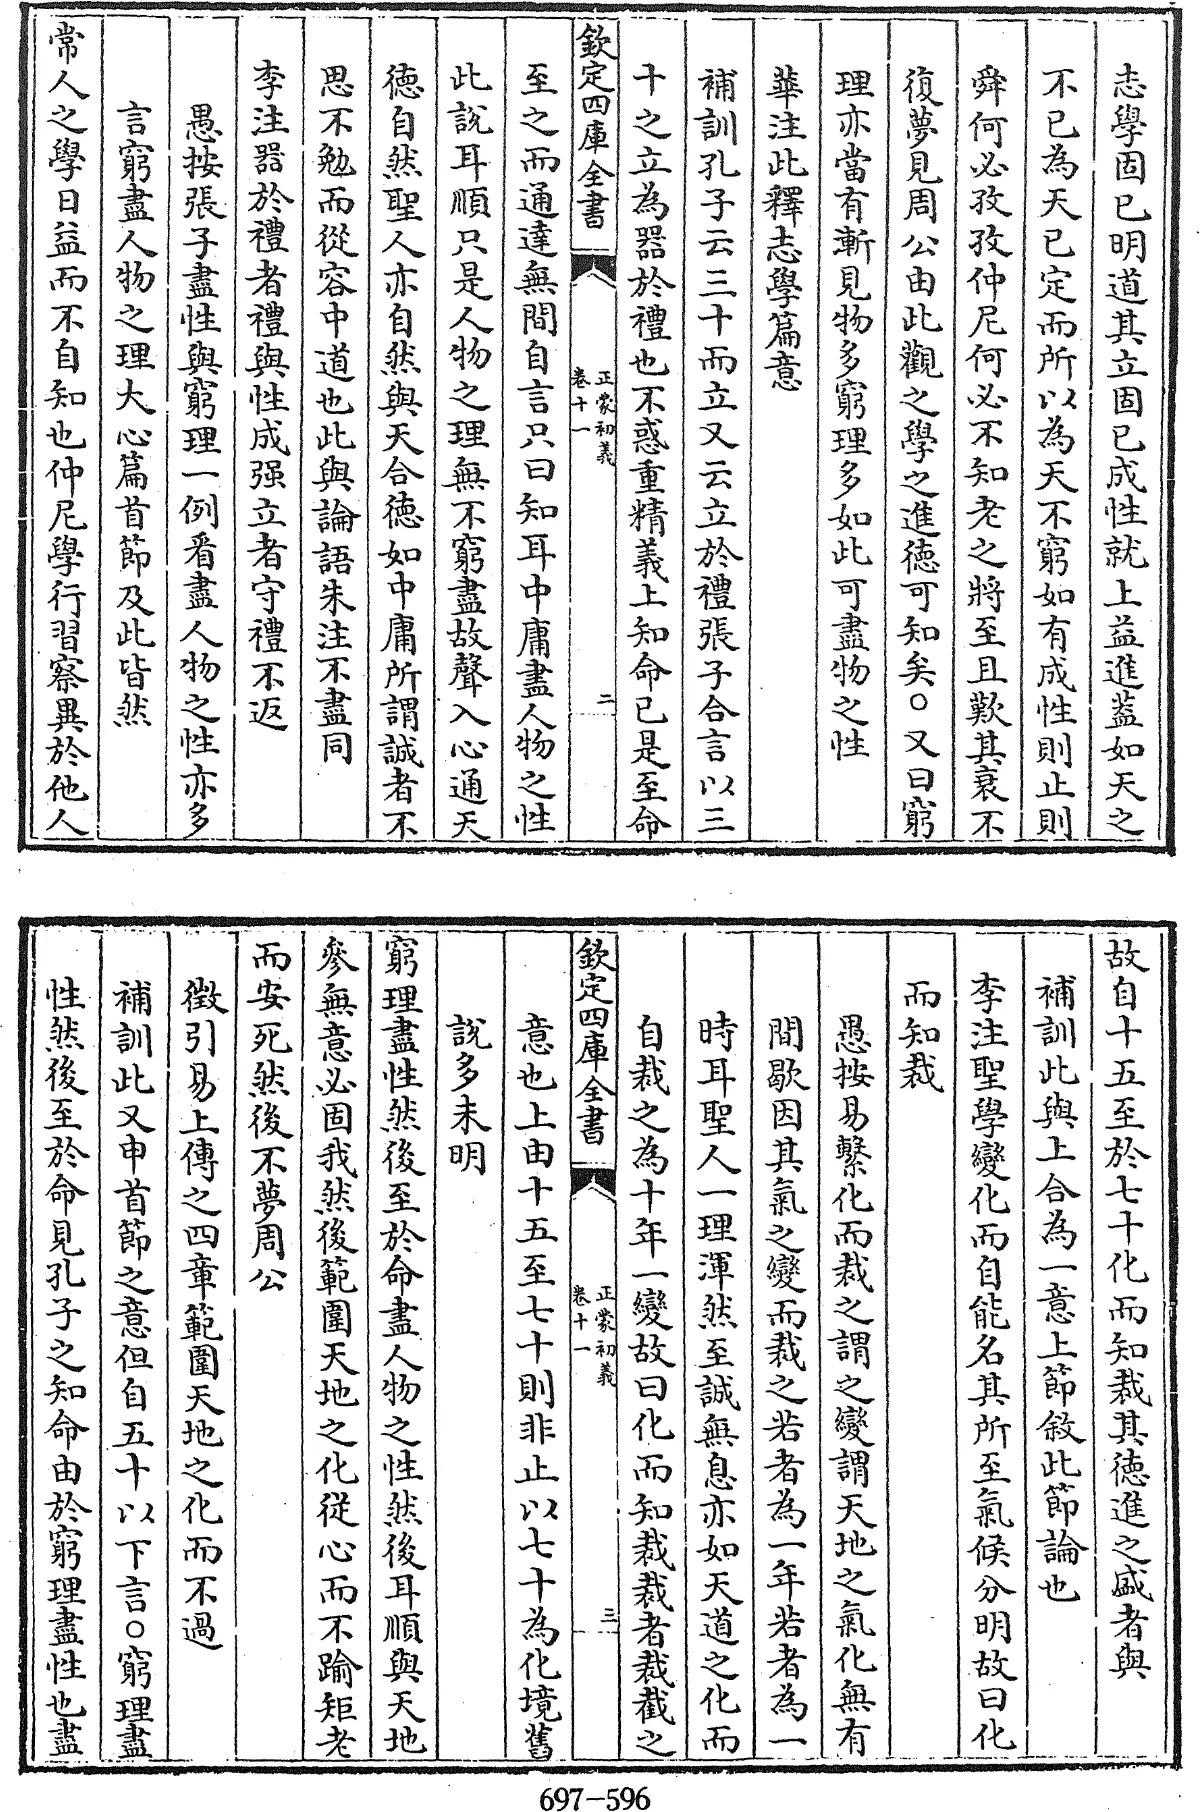 志學固已明道其立固已成性就上益進葢如天之
不已為天已定而所以為天不窮如有成性則止則
舜何必孜孜仲尼何必不知老之將至且歎其衰不
復夢見周公由此觀之學之進徳可知矣○又曰窮
理亦當有漸見物多窮理多如此可盡物之性
華注此釋志學篇意
補訓孔子云三十而立又云立於禮張子合言以三
十之立為器於禮也不惑重精義上知命已是至命
欽定四庫全書
正蒙初義
卷十一
二
至之而通達無間自言只曰知耳中庸盡人物之性
此說耳順只是人物之理無不窮盡故聲入心通天
徳自然聖人亦自然與天合徳如中庸所謂誠者不
思不勉而從容中道也此與論語朱注不盡同
李注器於禮者禮與性成强立者守禮不返
愚按張子盡性與窮理一例看盡人物之性亦多
言窮盡人物之理大心篇首節及此皆然
常人之學日益而不自知也仲尼學行習察異於他人
故自十五至於七十化而知裁其徳進之盛者與
補訓此與上合為一意上節敘此節論也
李注聖學變化而自能名其所至氣候分明故曰化
而知裁
愚按易繫化而裁之謂之變謂天地之氣化無有
間歇因其氣之變而裁之若者為一年若者為一
時耳聖人一理渾然至誠無息亦如天道之化而
自裁之為十年一變故曰化而知裁裁者裁截之
欽定四庫全書
正蒙初義
卷十一
三
意也上由十五至七十則非止以七十為化境舊
說多未明
窮理盡性然後至於命盡人物之性然後耳順與天地
參無意必固我然後範圍天地之化從心而不踰矩老
而安死然後不夢周公
徵引易上傳之四章範圍天地之化而不過
補訓此又申首節之意但自五十以下言○窮理盡
性然後至於命見孔子之知命由於窮理盡性也盡
697-596